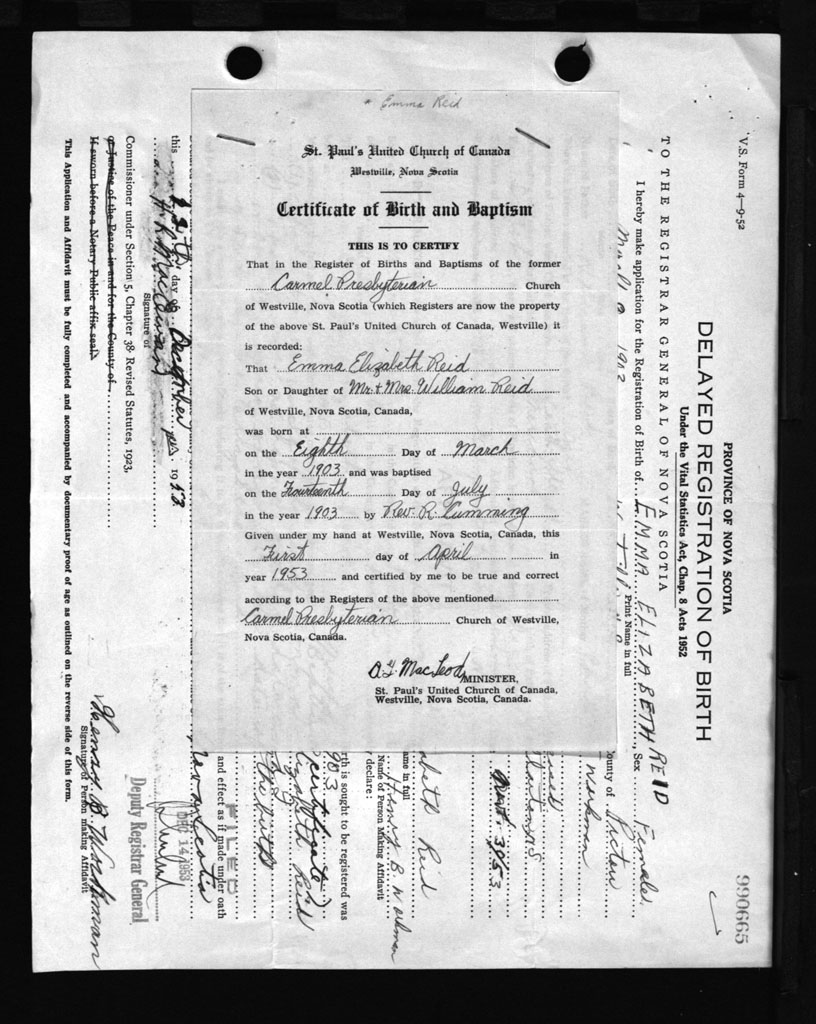 * Emma Reid
St. Paul's United Church of Canada
Westville, Nova Scotia
Certificate of Birth and Baptism
THIS IS TO CERTIFY
That in the Register of Births and Baptisms of the former
Carmel Presbyterian Church
of Westville, Nova Scotia (which Registers are now the property
of the above St. Paul's United Church of Canada, Westville) it
is recorded:
That Emma Elizabeth Reid
Son or Daughter of Mr. + Mrs. William Reid
of Westville, Nova Scotia, Canada,
was born at
on the Eighth Day of March
in the year 1903 and was baptised
on the Fourteenth Day of July
in the year 1903 by Rev. R. Cumming
Given under my hand at Westville, Nova Scotia, Canada, this
First day of April in
year 1953 and certified by me to be true and correct
according to the Registers of the above mentioned
Carmel Presbyterian Church of Westville,
Nova Scotia, Canada.
MacLeod, MINISTER,
St. Paul's United Church of Canada,
Westville, Nova Scotia, Canada.
V.S. Form 4—9-52
990665
PROVINCE OF NOVA SCOTIA
DELAYED REGISTRATION OF BIRTH
Under the Vital Statistics Act, Chap. 8 Acts 1952
TO THE REGISTRAR GENERAL OF NOVA SCOTIA
I hereby make application for the Registration of Birth of EMMA ELIZABETH REID, Sex Female
Print Name in full
March 8 1903
ounty of Pictou
Workman
1953
abeth Reid
ame in full
Henry B. Workman
Name of Person Making Affidavit
declare:
rth is sought to be registered was
903
certificate
Elizabeth Reid
and effect as if made under oath
FILED
DEC 14 1953
Deputy Registrar General
Nova Scotia
this day of December 1953
Signature of
Commissioner under Section 5, Chapter 38 Revised Statutes, 1923,
or Justice of the Peace in and for the County of
If sworn before a Notary Public affix seal)
Henry B. Workman
Signature of Person making Affidavit
This Application and Affidavit must be fully completed and accompanied by documentary proof of age as outlined on the reverse side of this form.